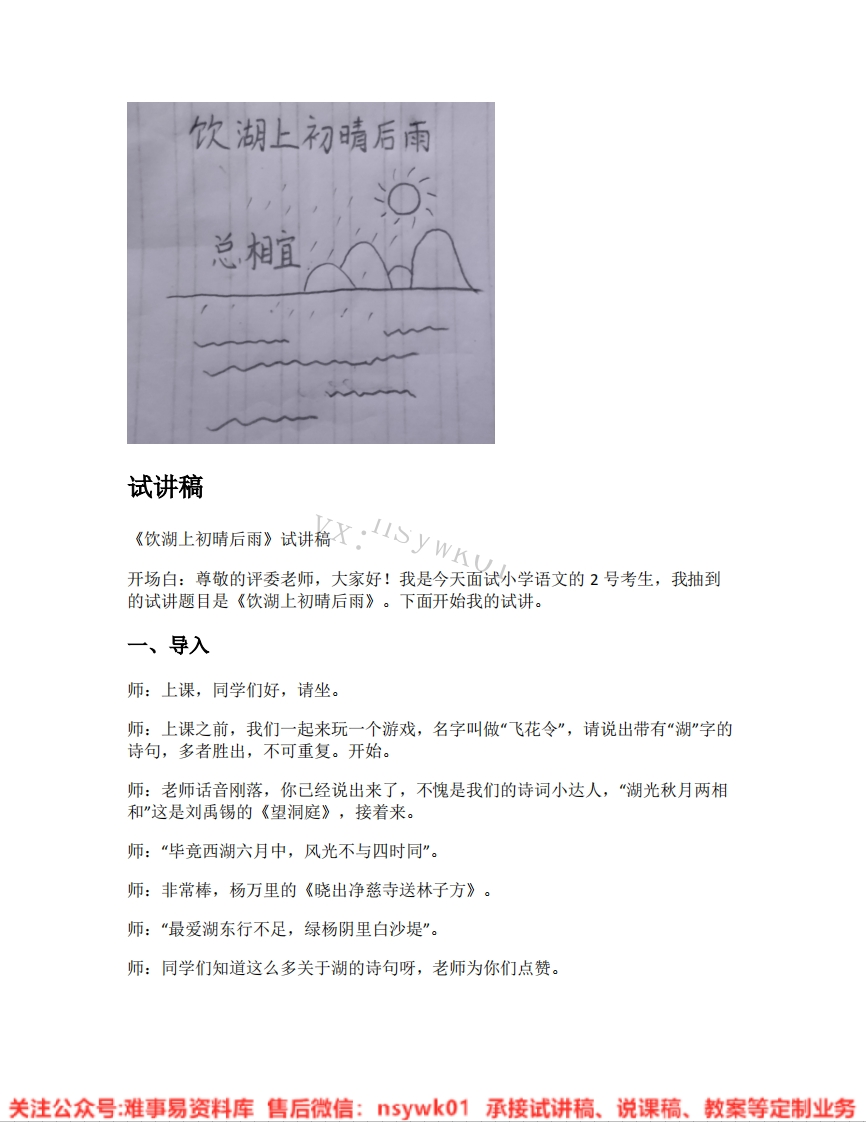 饮湖上初晴后雨
总相宜
试讲稿
VX:nsywk01
《饮湖上初晴后雨》试讲稿
开场白：尊敬的评委老师，大家好！我是今天面试小学语文的 2 号考生，我抽到
的试讲题目是《饮湖上初晴后雨》。下面开始我的试讲。
一、导入
师：上课，同学们好，请坐。
师：上课之前，我们一起来玩一个游戏，名字叫做“飞花令”，请说出带有“湖”字的
诗句，多者胜出，不可重复。开始。
师：老师话音刚落，你已经说出来了，不愧是我们的诗词小达人，“湖光秋月两相
和”这是刘禹锡的《望洞庭》，接着来。
师：“毕竟西湖六月中，风光不与四时同”。
师：非常棒，杨万里的《晓出净慈寺送林子方》。
师：“最爱湖东行不足，绿杨阴里白沙堤”。
师：同学们知道这么多关于湖的诗句呀，老师为你们点赞。
关注公众号:难事易资料库 售后微信：nsywk01 承接试讲稿、说课稿、教案等定制业务